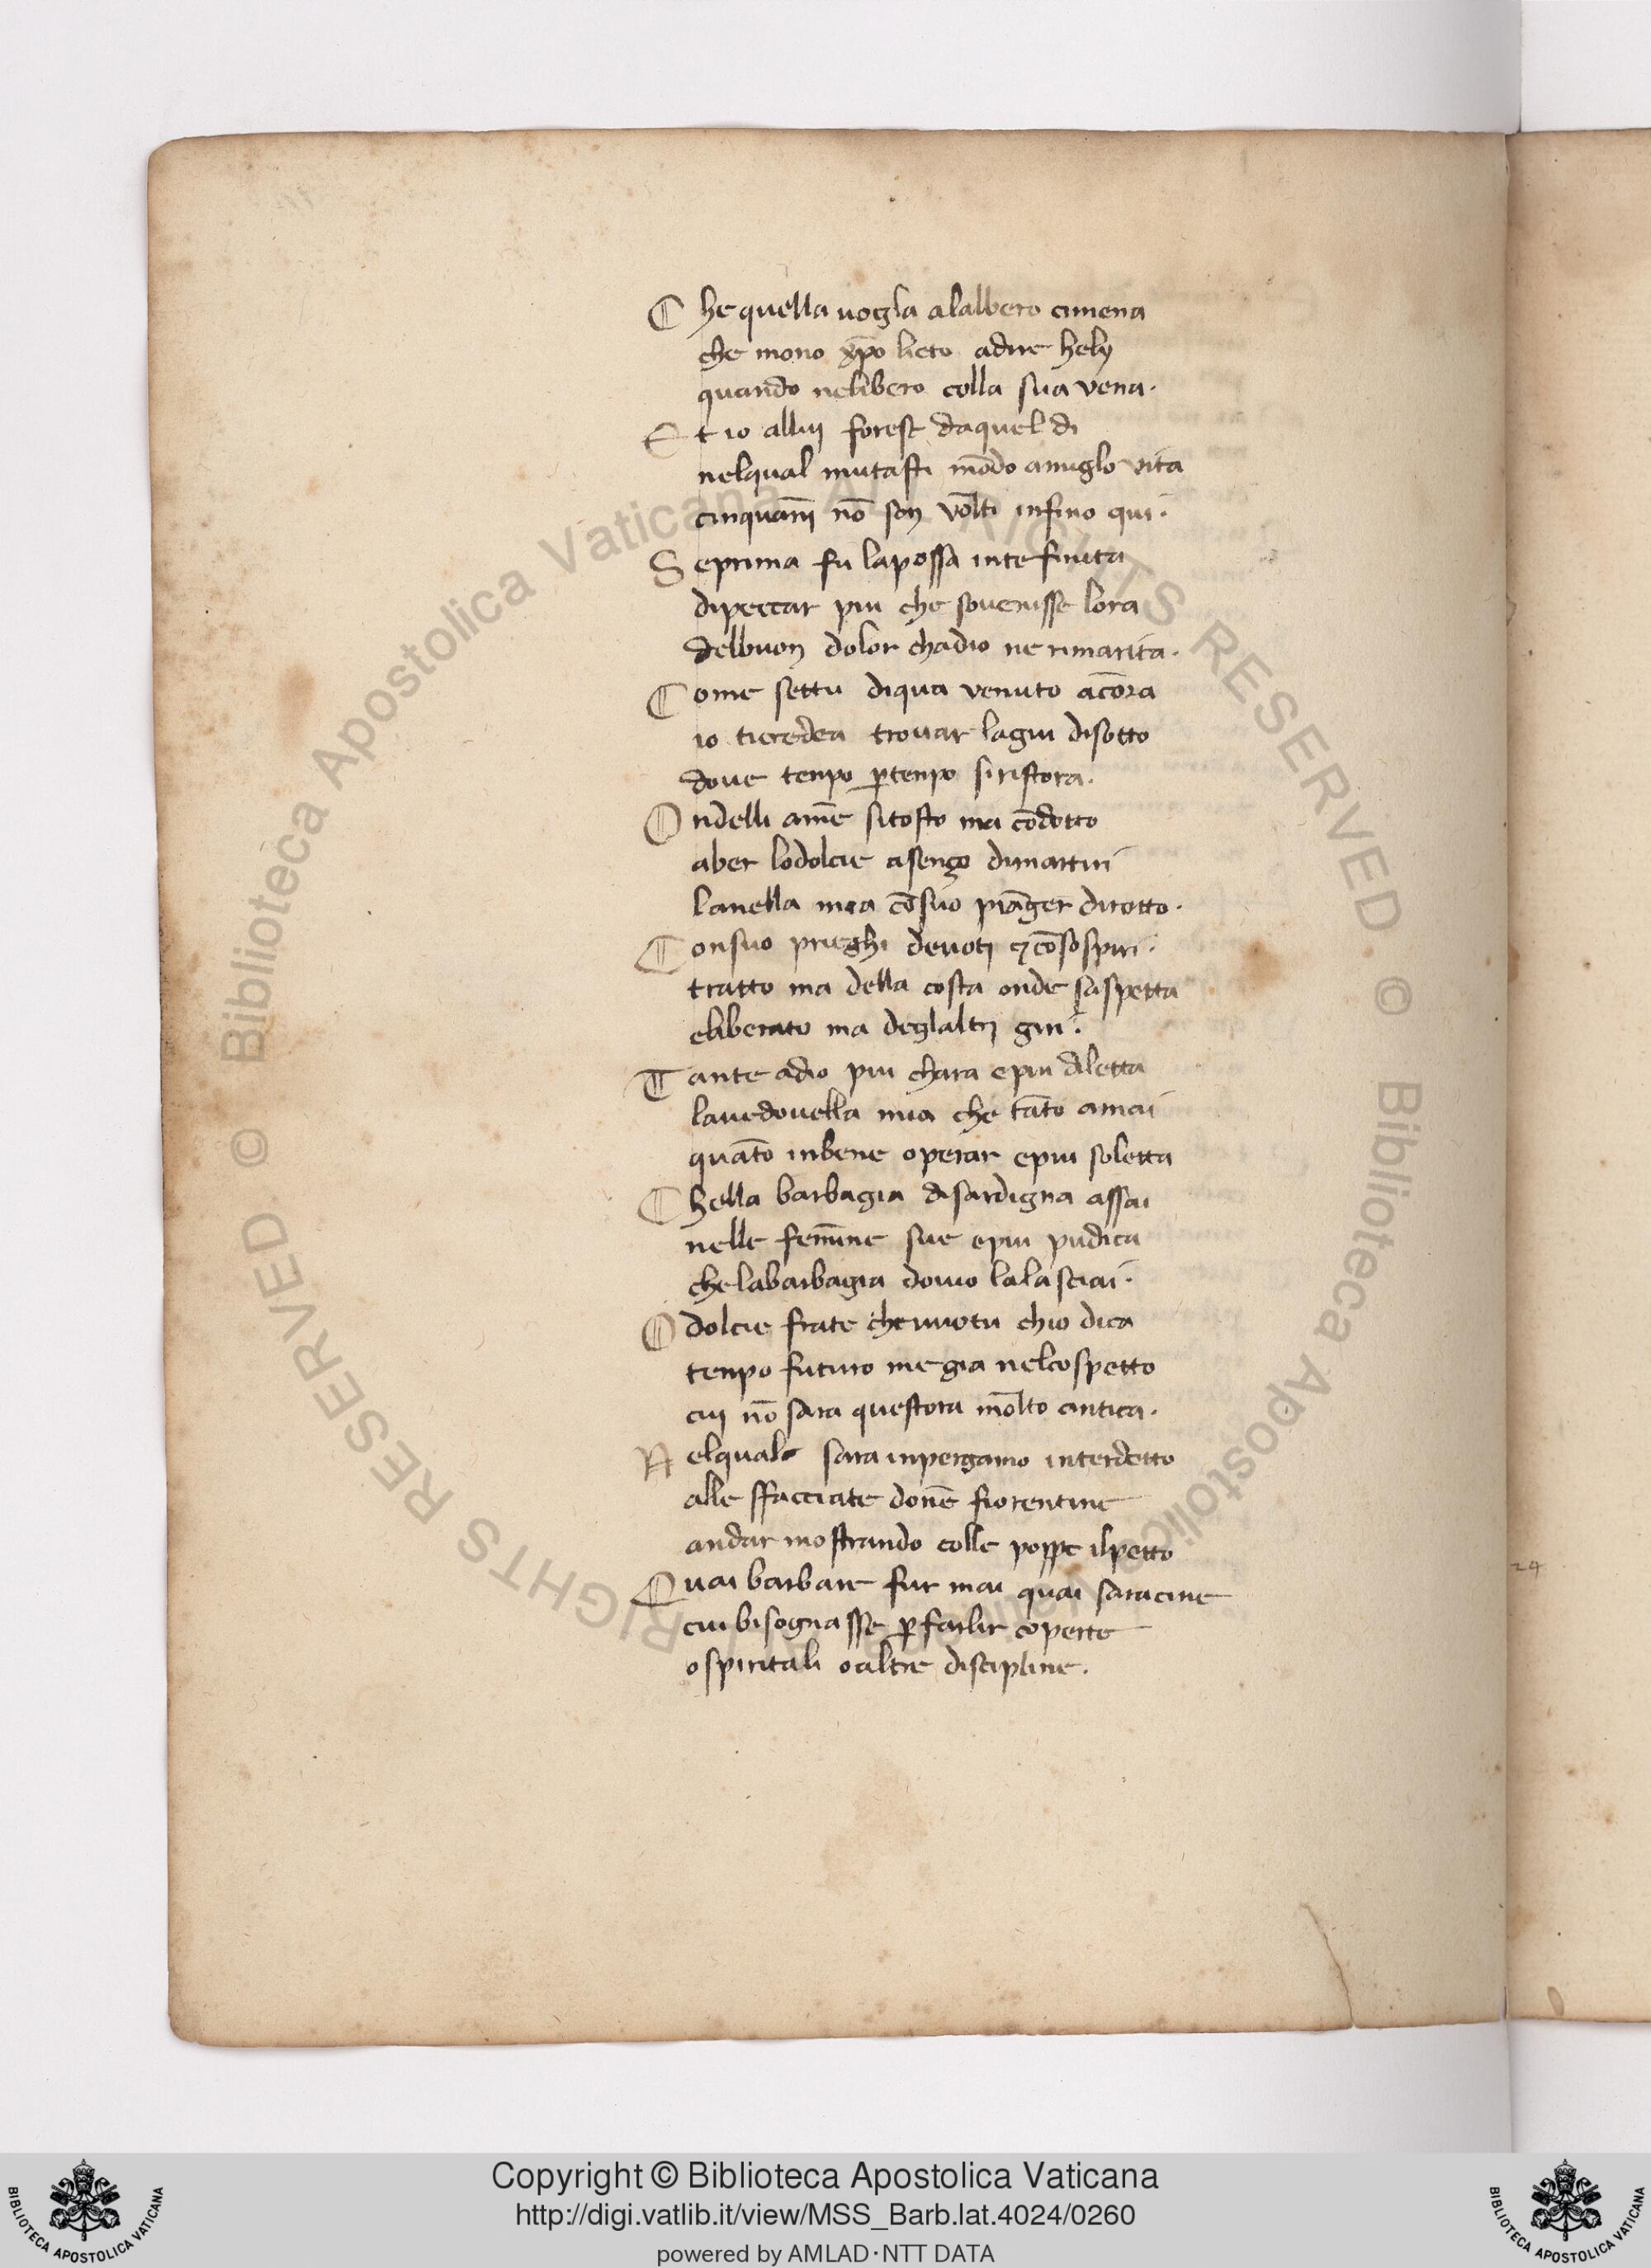 C he quella uogla alalbero cimena
che mono xp̄o lieto adire hely
quando neliberо colla sua vena·
E t io allui forese daquel di
nelqual mutasti mōdo amiglo vita
cinquanī nō son vōlti infino qui·
S eprima fu lapossa inte finita
dipeccar piu che souenisse lora
delbuon dolor chadio ne rimarita·
C ome settu diqua venuto acōra
io ticredea trouar lagiu disotto
doue tenpo p̱tenpo siristora·
O ndelli amē sitosto ma cōdotto
aber lodolcie asenzo dimartiri
lanella mea cōsuo piāger dirotto·
C onsuo prieghi deuoti ⁊ cōsospiri·
tratto ma della costa onde saspetta
eliberato ma deglaltri giri·
T ante adio piu chara epiu diletta
lauedouella mia che tāto amai
quāto inbene operar epiu soletta
C hella barbagia disardigna assai
nelle femīne sue epiu pudica
chelabarbagia douio lalasciai·
O dolcie frate cheuuotu chio dica
tenpo futuro megia nelcospetto
cui nō sara questora mōlto antica·
N elquale sara inpergamo interdetto
alle sfacciate donē fiorentine
andar mostrando colle poppe ilpetto
Q uai barbare fur mai quai saracine
cui bisognasse p̱farlir coperte
o spiritali o altre discipline·
24
© Biblioteca Apostolica Vaticana ALL RIGHTS RESERVED © Biblioteca Apostolica Vaticana ALL RIGHTS RESERVED
Copyright © Biblioteca Apostolica Vaticana
http://digi.vatlib.it/view/MSS_Barb.lat.4024/0260
powered by AMLAD·NTT DATA
BIBLIOTECA APOSTOLICA VATICANA
BIBLIOTECA APOSTOLICA VATICANA